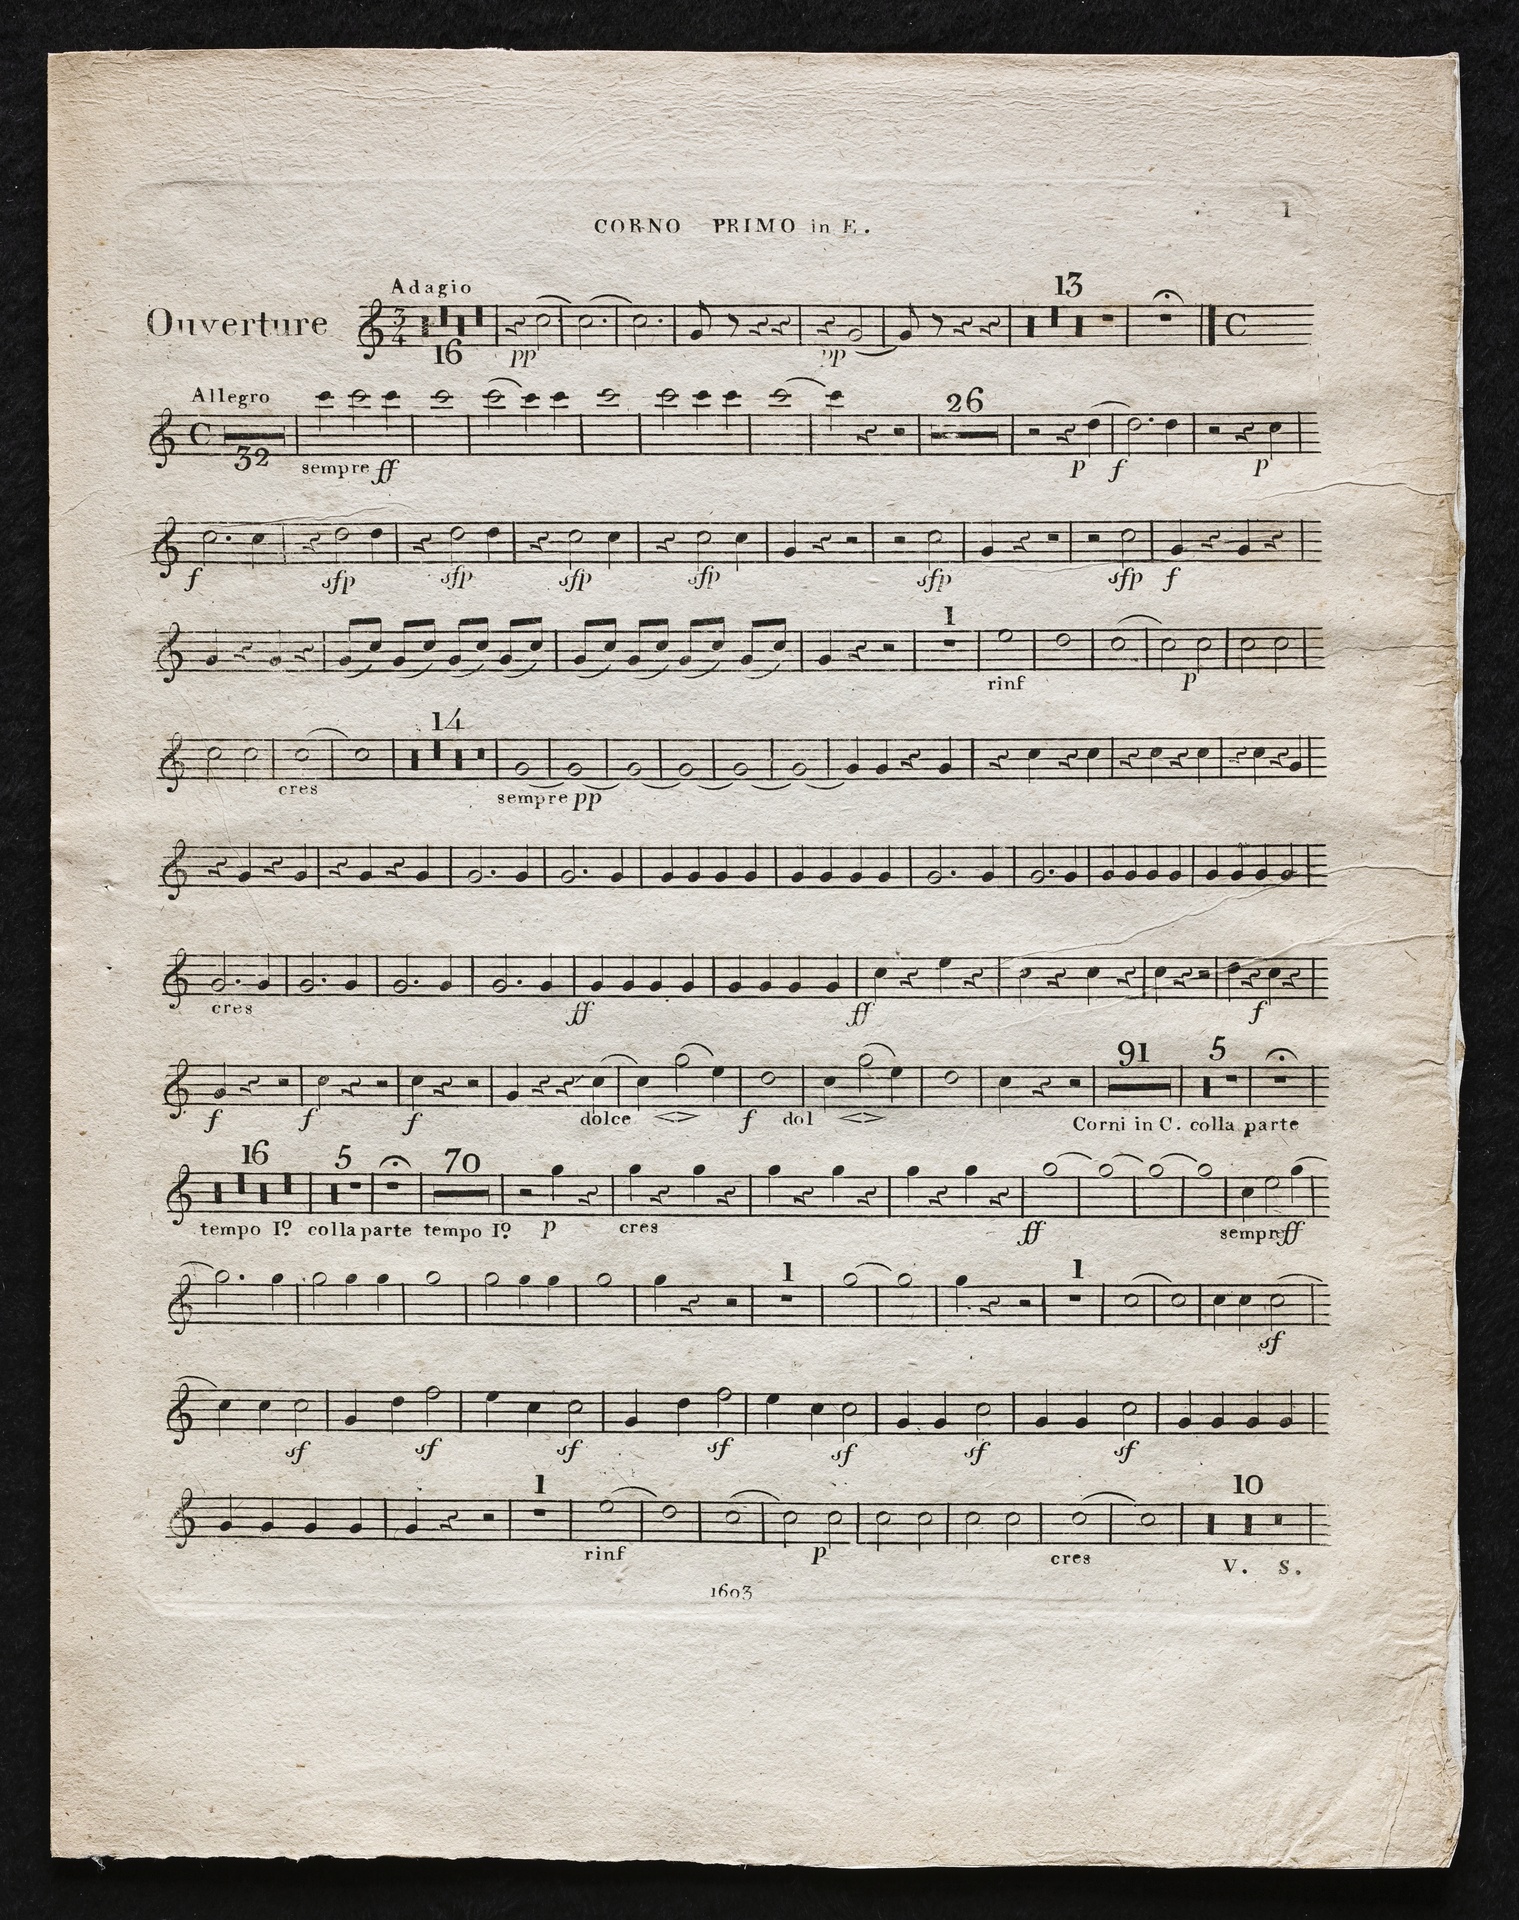 1
CORNO PRIMO in E.
Adagio
13
Ouverture
16
pp pp
Allegro
26
32
sempre ff p f p
f sfp sfp sfp sfp sfp sfp f
1
rinf p
14
cres sempre pp
cres ff ff f
91 5
f f f dolce f dol Corni in C. colla parte
16 5 70
tempo Iº. colla parte tempo Iº. p cres ff sempreff
1 1
sf
sf sf sf sf sf sf sf
1 10
rinf p cres V. S.
1603